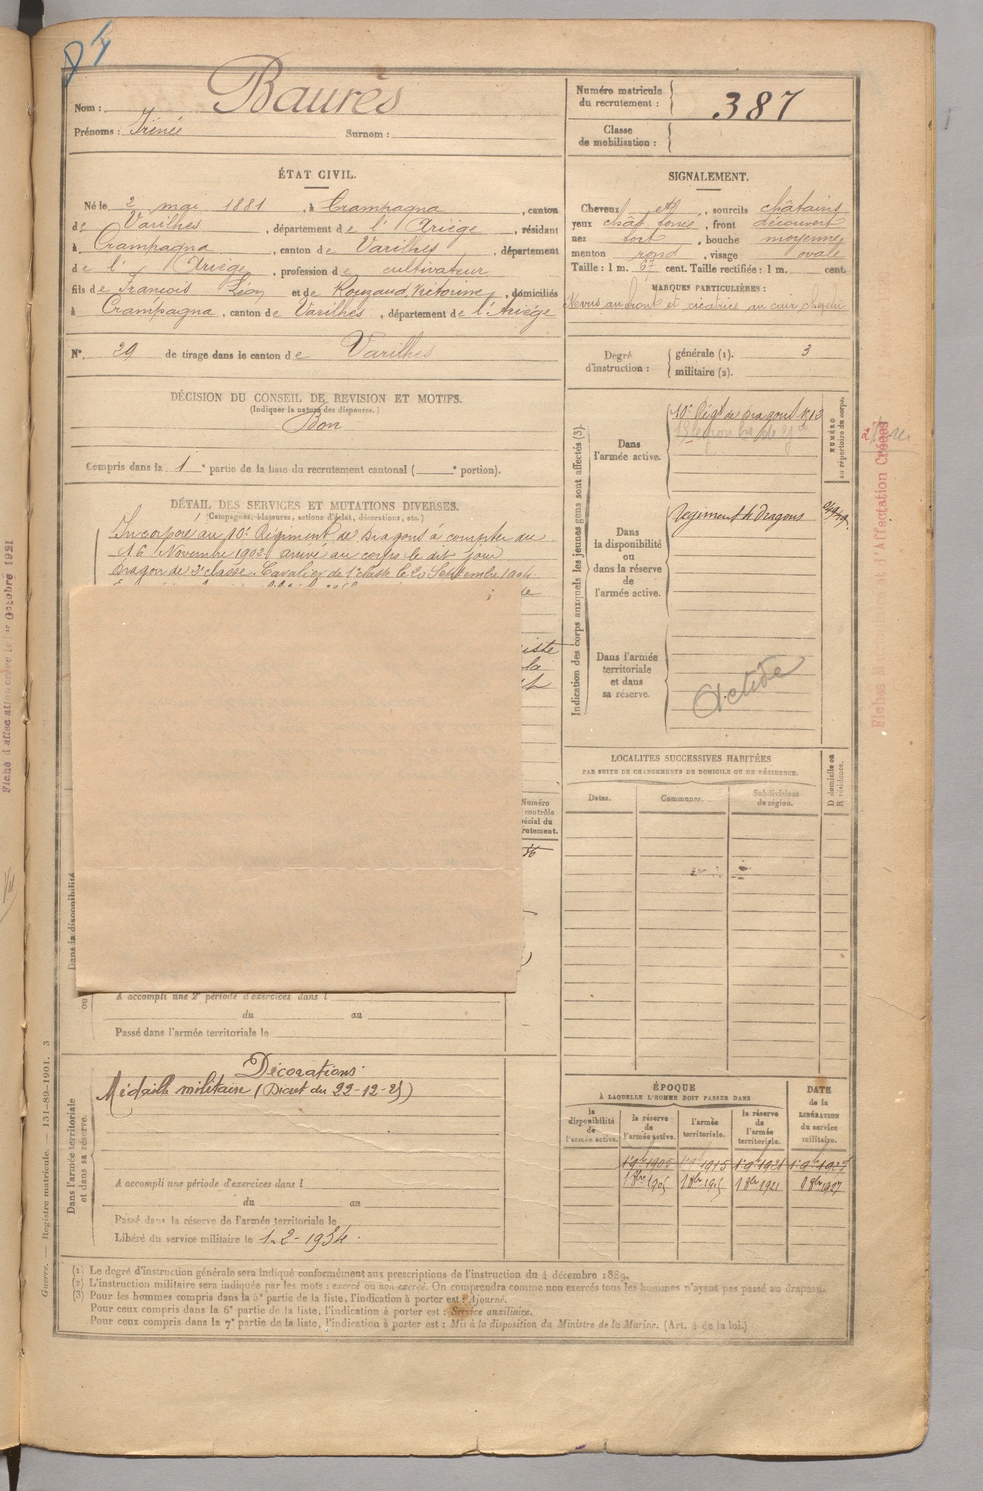 Nom : Baurès
Prénoms : Irénée Surnom :
Numéro matricule du recrutement : 387
Classe de mobilisation :
ÉTAT CIVIL.
Né le 2 mai 1881, à Crampagna, canton
de Varilhes, département de l'Ariège, résidant
à Crampagna, canton de Varilhes, département
de l'Ariège, profession de cultivateur
fils de François Léon et de Rouzaud, Victorine, domiciliés
à Crampagna, canton de Varilhes, département de l'Ariège
N° 29 de tirage dans le canton de Varilhes
SIGNALEMENT.
Cheveux et, sourcils châtains
yeux chât foncé, front découvert
nez fort, bouche moyenne
menton rond, visage ovale
Taille : 1 m. 67 cent. Taille rectifiée : 1 m. cent.
MARQUES PARTICULIÈRES :
au front et cicatrice au cuir chevelu
Degré d'instruction : générale (1). 3
militaire (2).
DÉCISION DU CONSEIL DE REVISION ET MOTIFS.
(Indiquer la nature des dispenses.)
Bon
Compris dans la 1e partie de la liste du recrutement cantonal ( e portion).
DÉTAIL DES SERVICES ET MUTATIONS DIVERSES.
(Campagnes, blessures, actions d'éclat, décorations, etc.)
Incorporé au 10e Régiment de Dragons à compter du
16 Novembre 1902 arrivé au corps le dit jour
Dragon de 2e classe. Cavalier de 1e classe le 20 Septembre 1904.
Indication des corps auxquels les jeunes gens sont affectés (3).
NUMÉRO au répertoire du corps.
Dans l'armée active.
10e Régt de Dragons
Dans la disponibilité ou dans la réserve de l'armée active.
Régiment de Dragons
Dans l'armée territoriale et dans sa réserve.
LOCALITÉS SUCCESSIVES HABITÉES
PAR SUITE DE CHANGEMENTS DE DOMICILE OU DE RÉSIDENCE.
Dates. Communes. Subdivisions de région. D domicile ou R résidence.
Numéro
contrôle
spécial du
recrutement.
Dans la disponibilité
ou
A accompli une 2e période d'exercices dans l
du au
Passé dans l'armée territoriale le
Décorations
Médaille militaire (Décret du 22-12-25)
Dans l'armée territoriale et dans sa réserve.
A accompli une période d'exercices dans l
du au
Passé dans la réserve de l'armée territoriale le
Libéré du service militaire le 1-2-1934.
ÉPOQUE
À LAQUELLE L'HOMME DOIT PASSER DANS
DATE de la LIBÉRATION du service militaire.
la disponibilité de l'armée active. la réserve de l'armée active. l'armée territoriale. la réserve de l'armée territoriale.
1 9bre 1905 1 9bre 1915 1 9bre 1921 1 9bre 1927
1 8bre 1905 1 8bre 1915 1 8bre 1921 1 8bre 1927
(1) Le degré d'instruction générale sera indiqué conformément aux prescriptions de l'instruction du 4 décembre 1889.
(2) L'instruction militaire sera indiquée par les mots : exercé ou non exercé. On comprendra comme non exercés tous les hommes n'ayant pas passé au drapeau.
(3) Pour les hommes compris dans la 5e partie de la liste, l'indication à porter est : Ajourné.
Pour ceux compris dans la 6e partie de la liste, l'indication à porter est : Service auxiliaire.
Pour ceux compris dans la 7e partie de la liste, l'indication à porter est : Mis à la disposition du Ministre de la Marine. (Art. 4 de la loi.)
Guerre. — Registre matricule. — 131-89-1901. 3
Fiche d'affectation créée le 1er Octobre 1921